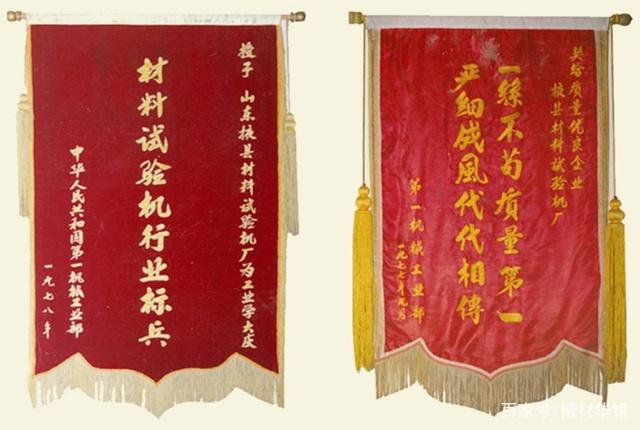 授予 山东掖县材料试验机厂为工业学大庆
材料试验机行业标兵
中华人民共和国第一机械工业部
一九七八年
奖给质量优良企业
掖县材料试验机厂
一丝不苟质量第一
严细成風代代相傳
第一机械工业部
一九七七年九月
百家号/掖材华银